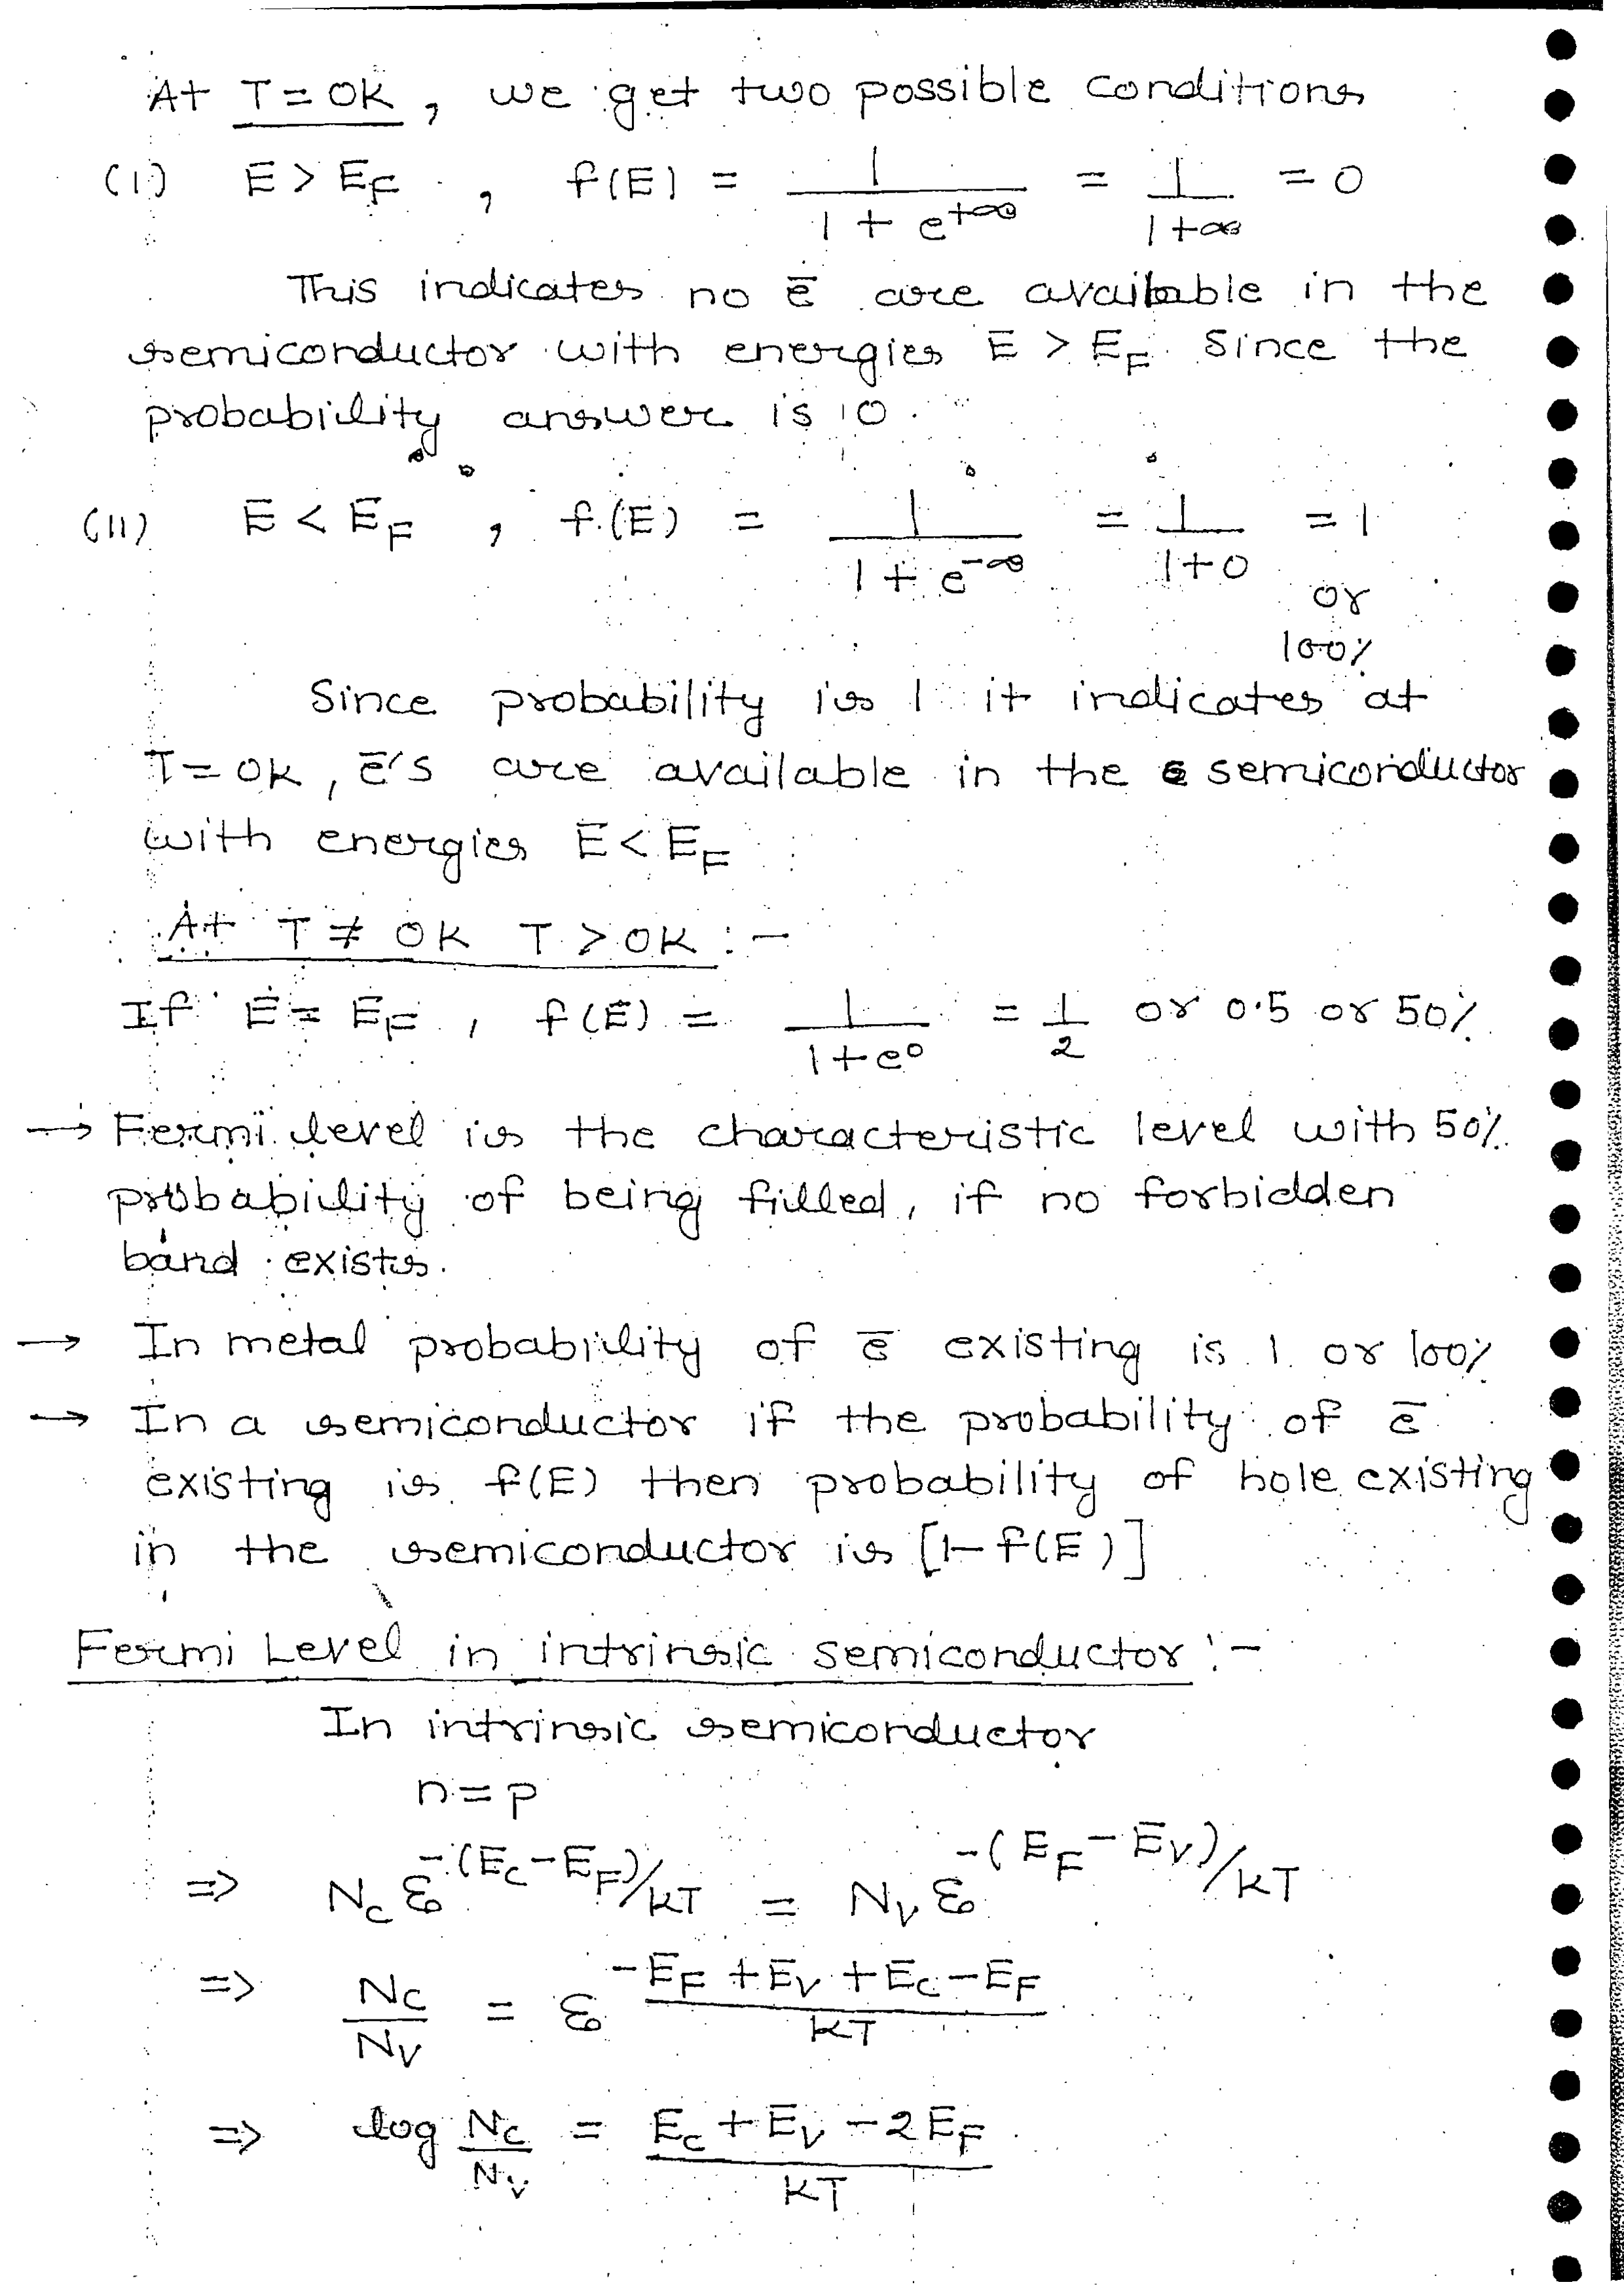 At T=0K, we get two possible conditions
(I) E > E_F , f(E) = 1/(1 + e^(+∞)) = 1/(1+∞) = 0
This indicates no ē are available in the
semiconductor with energies E > E_F since the
probability answer is 0.
(II) E < E_F , f(E) = 1/(1 + e^(-∞)) = 1/(1+0) = 1
or
100%
Since probability is 1 it indicates at
T=0K, ē's are available in the semiconductor
with energies E < E_F
At T ≠ 0K T > 0K :-
If E = E_F , f(E) = 1/(1+e^0) = 1/2 or 0.5 or 50%
→ Fermi level is the characteristic level with 50%
probability of being filled, if no forbidden
band exists.
→ In metal probability of ē existing is 1 or 100%
→ In a semiconductor if the probability of ē
existing is f(E) then probability of hole existing
in the semiconductor is [1-f(E)]
Fermi Level in intrinsic semiconductor :-
In intrinsic semiconductor
n = p
⇒ N_C ε^(-(E_C-E_F)/KT) = N_V ε^(-(E_F-E_V)/KT)
⇒ N_C/N_V = ε^((-E_F+E_V+E_C-E_F)/KT)
⇒ log N_C/N_V = (E_C+E_V-2E_F)/KT